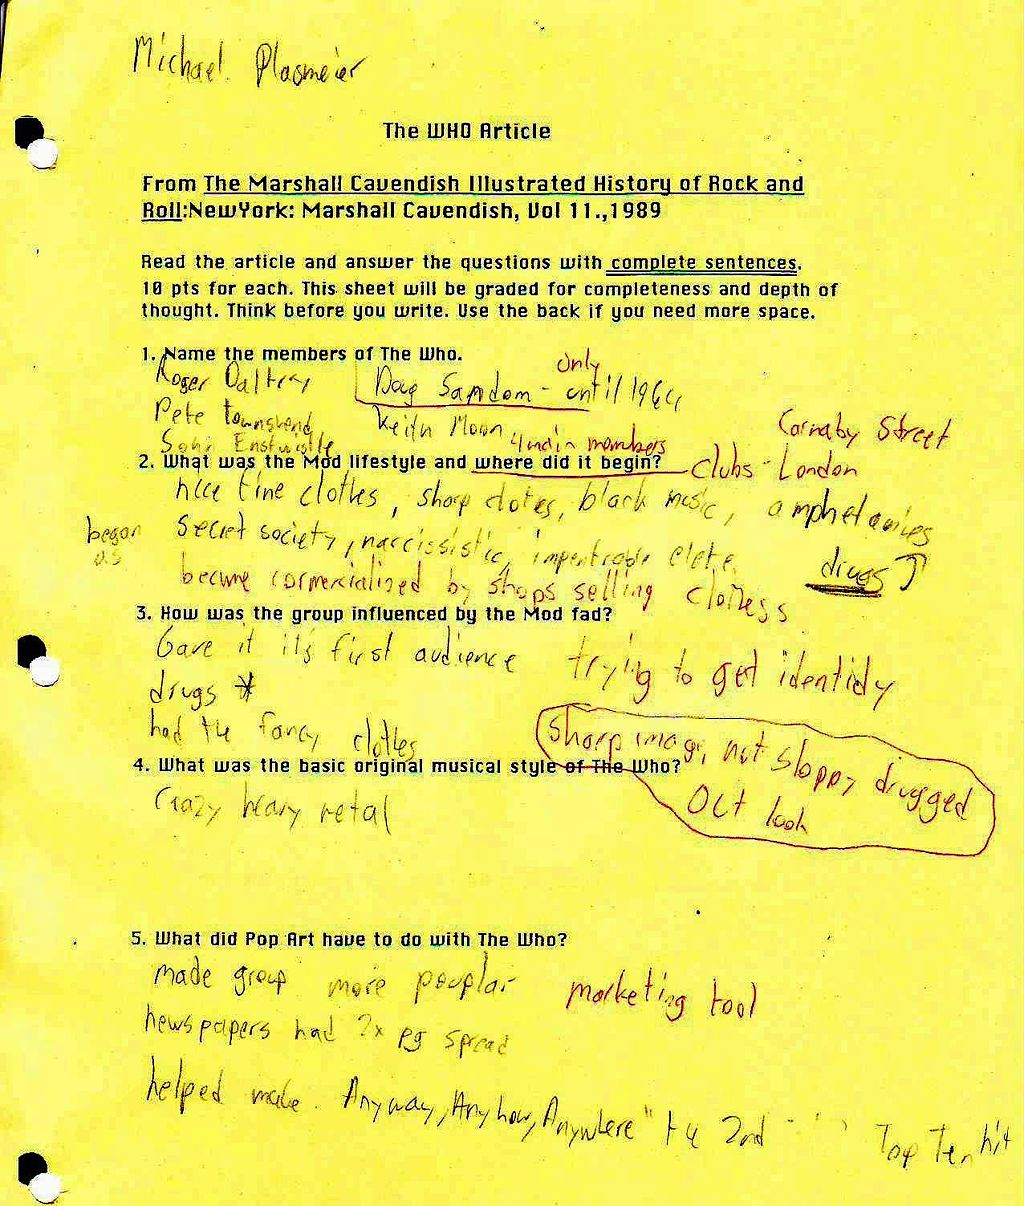 Michael Plasmeier
The WHO Article
From The Marshall Cavendish Illustrated History of Rock and
Roll:NewYork: Marshall Cavendish, Vol 11.,1989
Read the article and answer the questions with complete sentences.
10 pts for each. This sheet will be graded for completeness and depth of
thought. Think before you write. Use the back if you need more space.
1. Name the members of The Who.
only
Roger Daltray
Doug Sandom - until 1964
Pete townshend
Keith Moon
4 main members
John Enstwistle
Carnaby Street
2. What was the Mod lifestyle and where did it begin?
clubs - London
nice fine clothes, sharp clotes, black music, amphetamines
began as
Secret society, narcissistic, elete
drugs
became commercialized by shops selling clothess
3. How was the group influenced by the Mod fad?
Gave it it's first audience
trying to get identidy
drugs *
had the fancy clothes
sharp image, not sloppy drugged
out look
4. What was the basic original musical style of The Who?
Crazy heavy metal
5. What did Pop Art have to do with The Who?
made group more pouplar
marketing tool
newspapers had 2x pg spread
helped make Anyway, Anyhow, Anywhere" the 2nd Top Ten hit